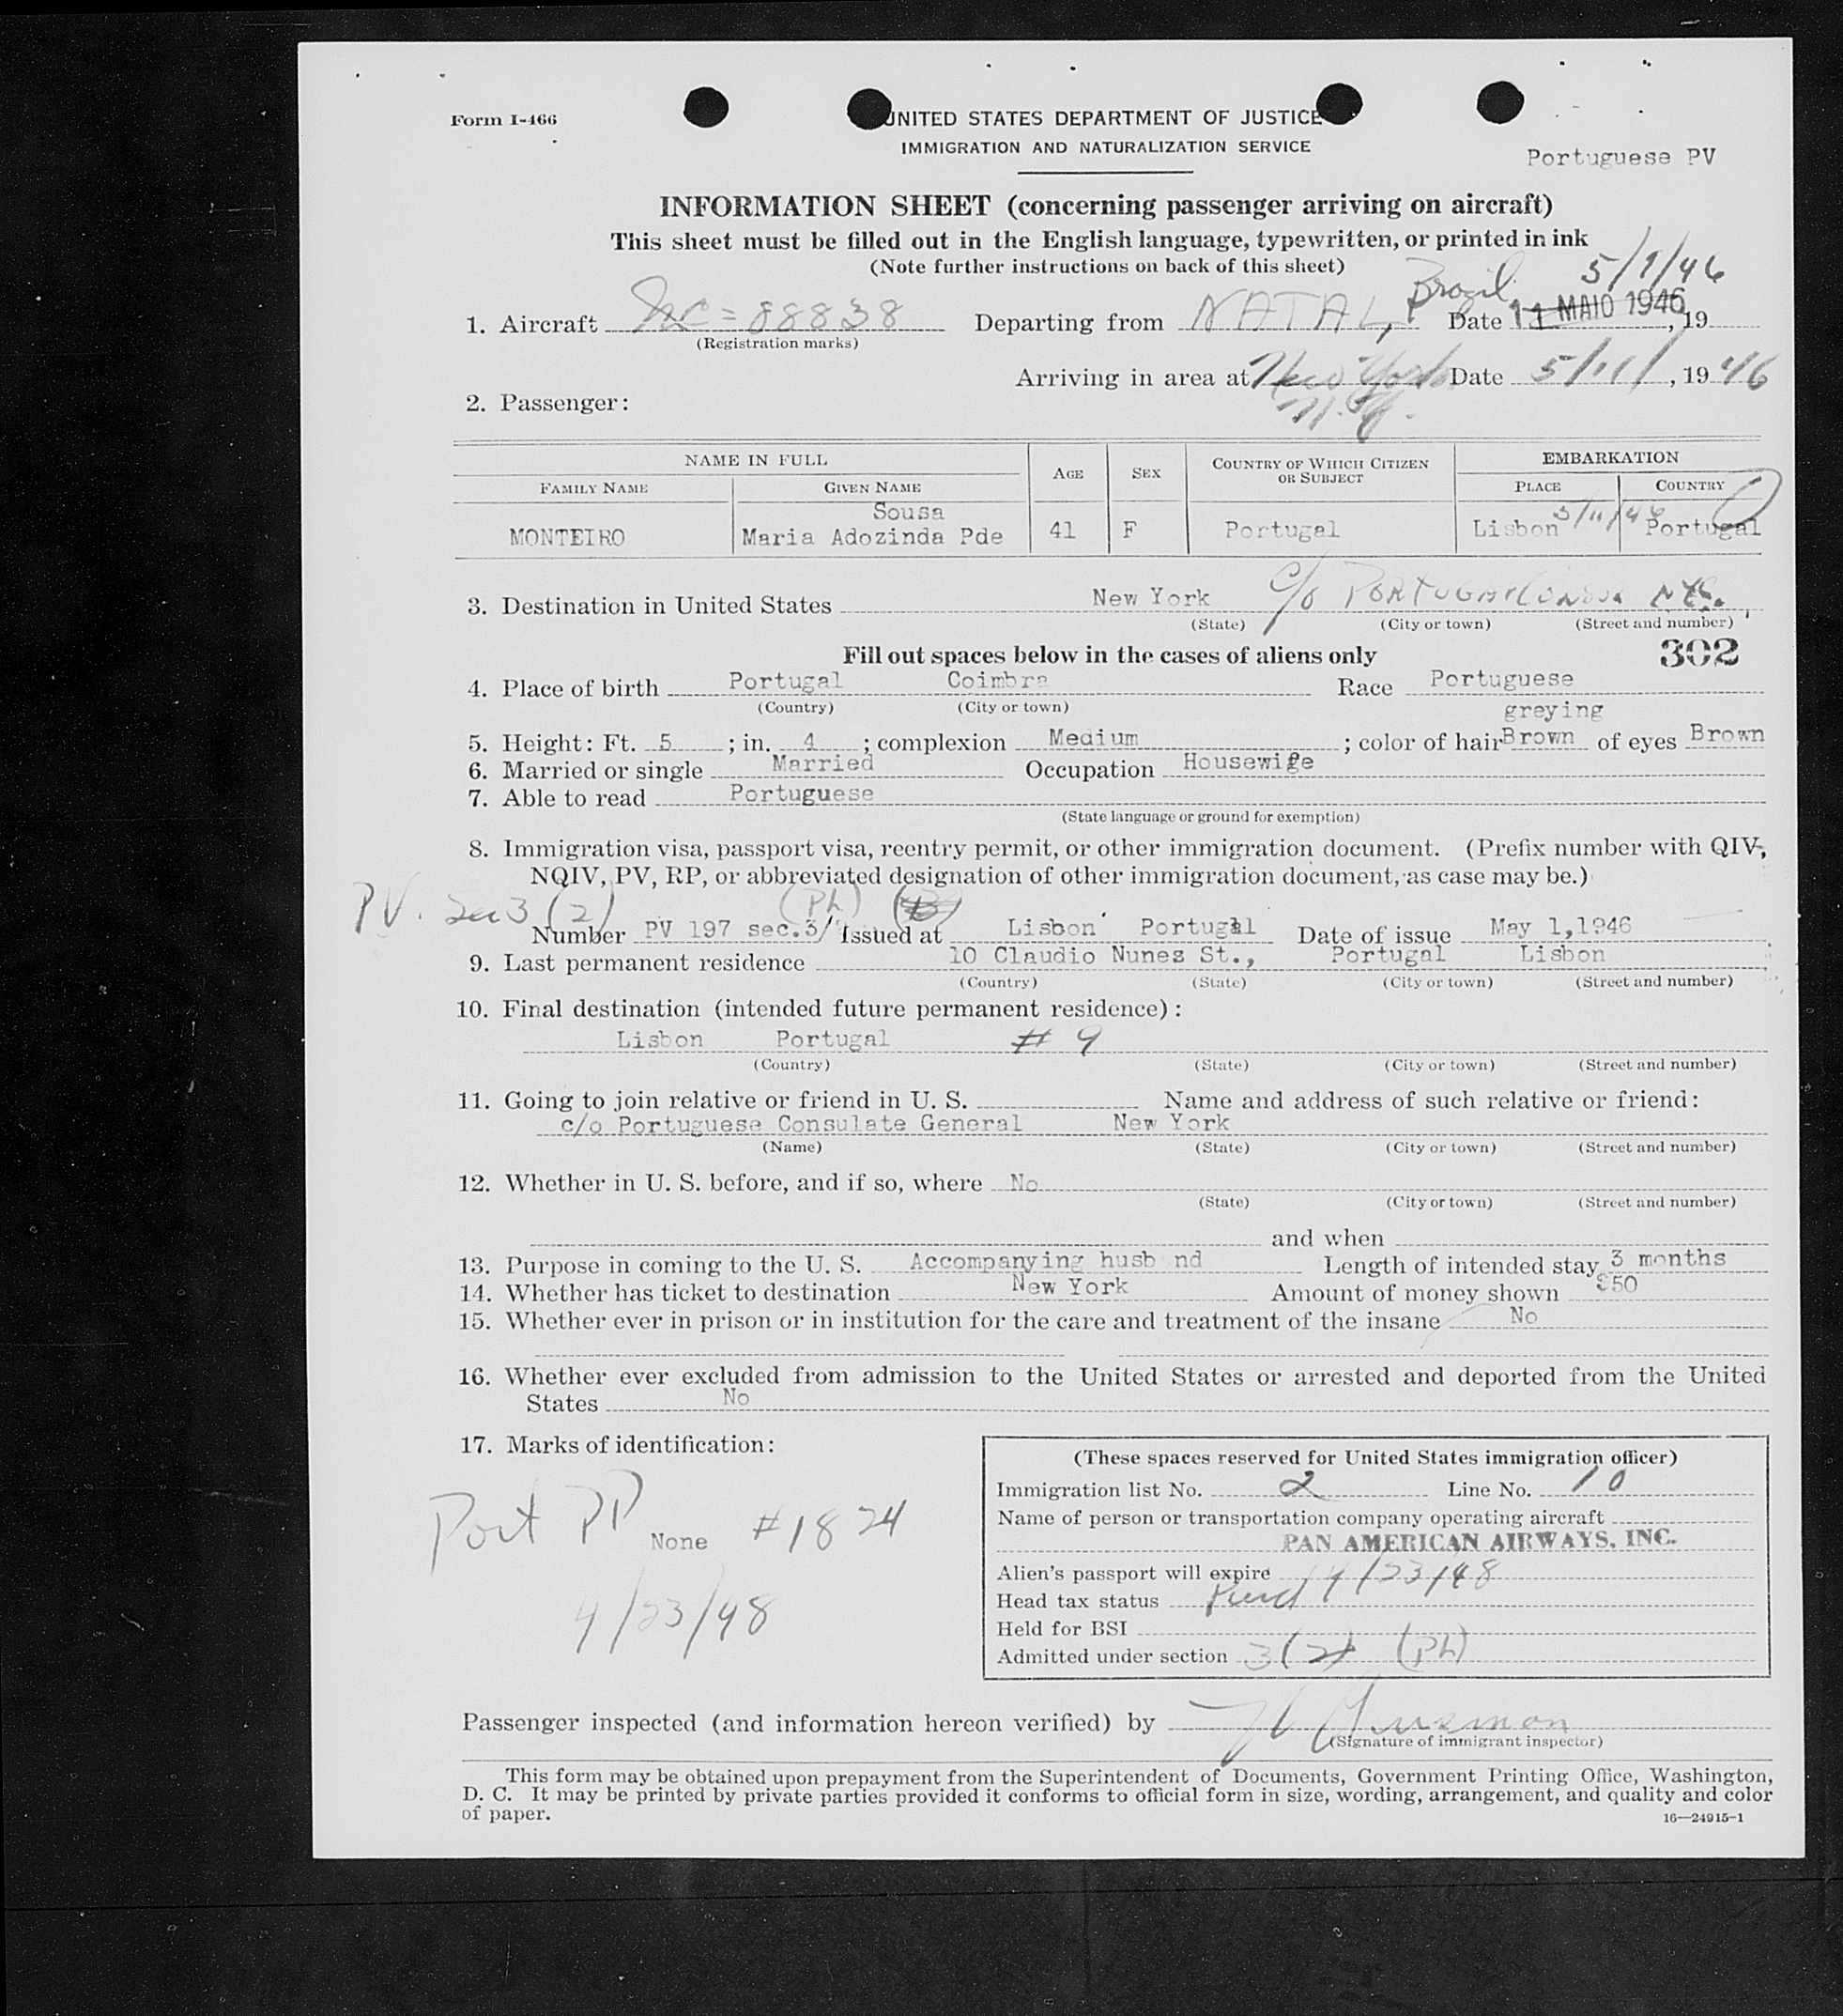 Form I-466
UNITED STATES DEPARTMENT OF JUSTICE
IMMIGRATION AND NATURALIZATION SERVICE
Portuguese PV
INFORMATION SHEET (concerning passenger arriving on aircraft)
This sheet must be filled out in the English language, typewritten, or printed in ink
(Note further instructions on back of this sheet)
5/1/46
1. Aircraft NC = 88838 Departing from NATAL, Brazil Date 11 MAIO 1946, 19
(Registration marks)
Arriving in area at New York Date 5/11/, 1946
N.Y.
2. Passenger:
NAME IN FULL AGE SEX COUNTRY OF WHICH CITIZEN OR SUBJECT EMBARKATION
FAMILY NAME GIVEN NAME PLACE COUNTRY
Sousa 5/11/46
MONTEIRO Maria Adozinda Pde 41 F Portugal Lisbon Portugal
3. Destination in United States New York c/o PORTUGAL NYC.
(State) (City or town) (Street and number)
Fill out spaces below in the cases of aliens only 302
4. Place of birth Portugal Coimbra Race Portuguese
(Country) (City or town)
greying
5. Height: Ft. 5 ; in. 4 ; complexion Medium ; color of hair Brown of eyes Brown
6. Married or single Married Occupation Housewife
7. Able to read Portuguese
(State language or ground for exemption)
8. Immigration visa, passport visa, reentry permit, or other immigration document. (Prefix number with QIV,
NQIV, PV, RP, or abbreviated designation of other immigration document, as case may be.)
PV. Sec 3 (2) (Ph)
Number PV 197 sec.3/ Issued at Lisbon Portugal Date of issue May 1,1946
9. Last permanent residence 10 Claudio Nunes St., Portugal Lisbon
(Country) (State) (City or town) (Street and number)
10. Final destination (intended future permanent residence):
Lisbon Portugal # 9
(Country) (State) (City or town) (Street and number)
11. Going to join relative or friend in U. S. Name and address of such relative or friend:
c/o Portuguese Consulate General New York
(Name) (State) (City or town) (Street and number)
12. Whether in U. S. before, and if so, where No
(State) (City or town) (Street and number)
and when
13. Purpose in coming to the U. S. Accompanying husb nd Length of intended stay 3 months
14. Whether has ticket to destination New York Amount of money shown $50
15. Whether ever in prison or in institution for the care and treatment of the insane No
16. Whether ever excluded from admission to the United States or arrested and deported from the United
States No
17. Marks of identification:
Port PP None #1824
4/23/48
(These spaces reserved for United States immigration officer)
Immigration list No. 2 Line No. 10
Name of person or transportation company operating aircraft
PAN AMERICAN AIRWAYS, INC.
Alien's passport will expire 4/23/48
Head tax status
Held for BSI
Admitted under section 3(2) (Ph)
Passenger inspected (and information hereon verified) by
(Signature of immigrant inspector)
This form may be obtained upon prepayment from the Superintendent of Documents, Government Printing Office, Washington,
D. C. It may be printed by private parties provided it conforms to official form in size, wording, arrangement, and quality and color
of paper.
16—24915-1